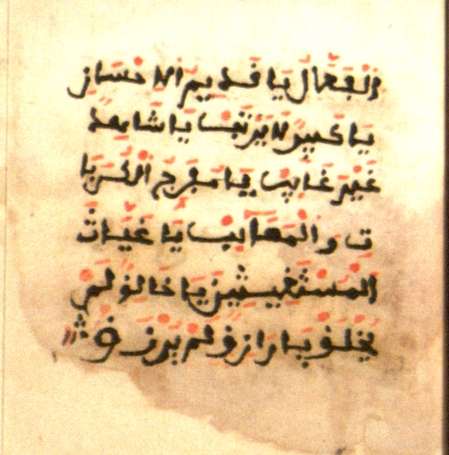 الفعال يا قديم الاحسان
يا كبير لا يا شاهد
غير غايب يا مفرج الكربا
ت والمصايب يا غياث
المستغيثين يا خالق لم
يخلق يا رازق لم يرزق